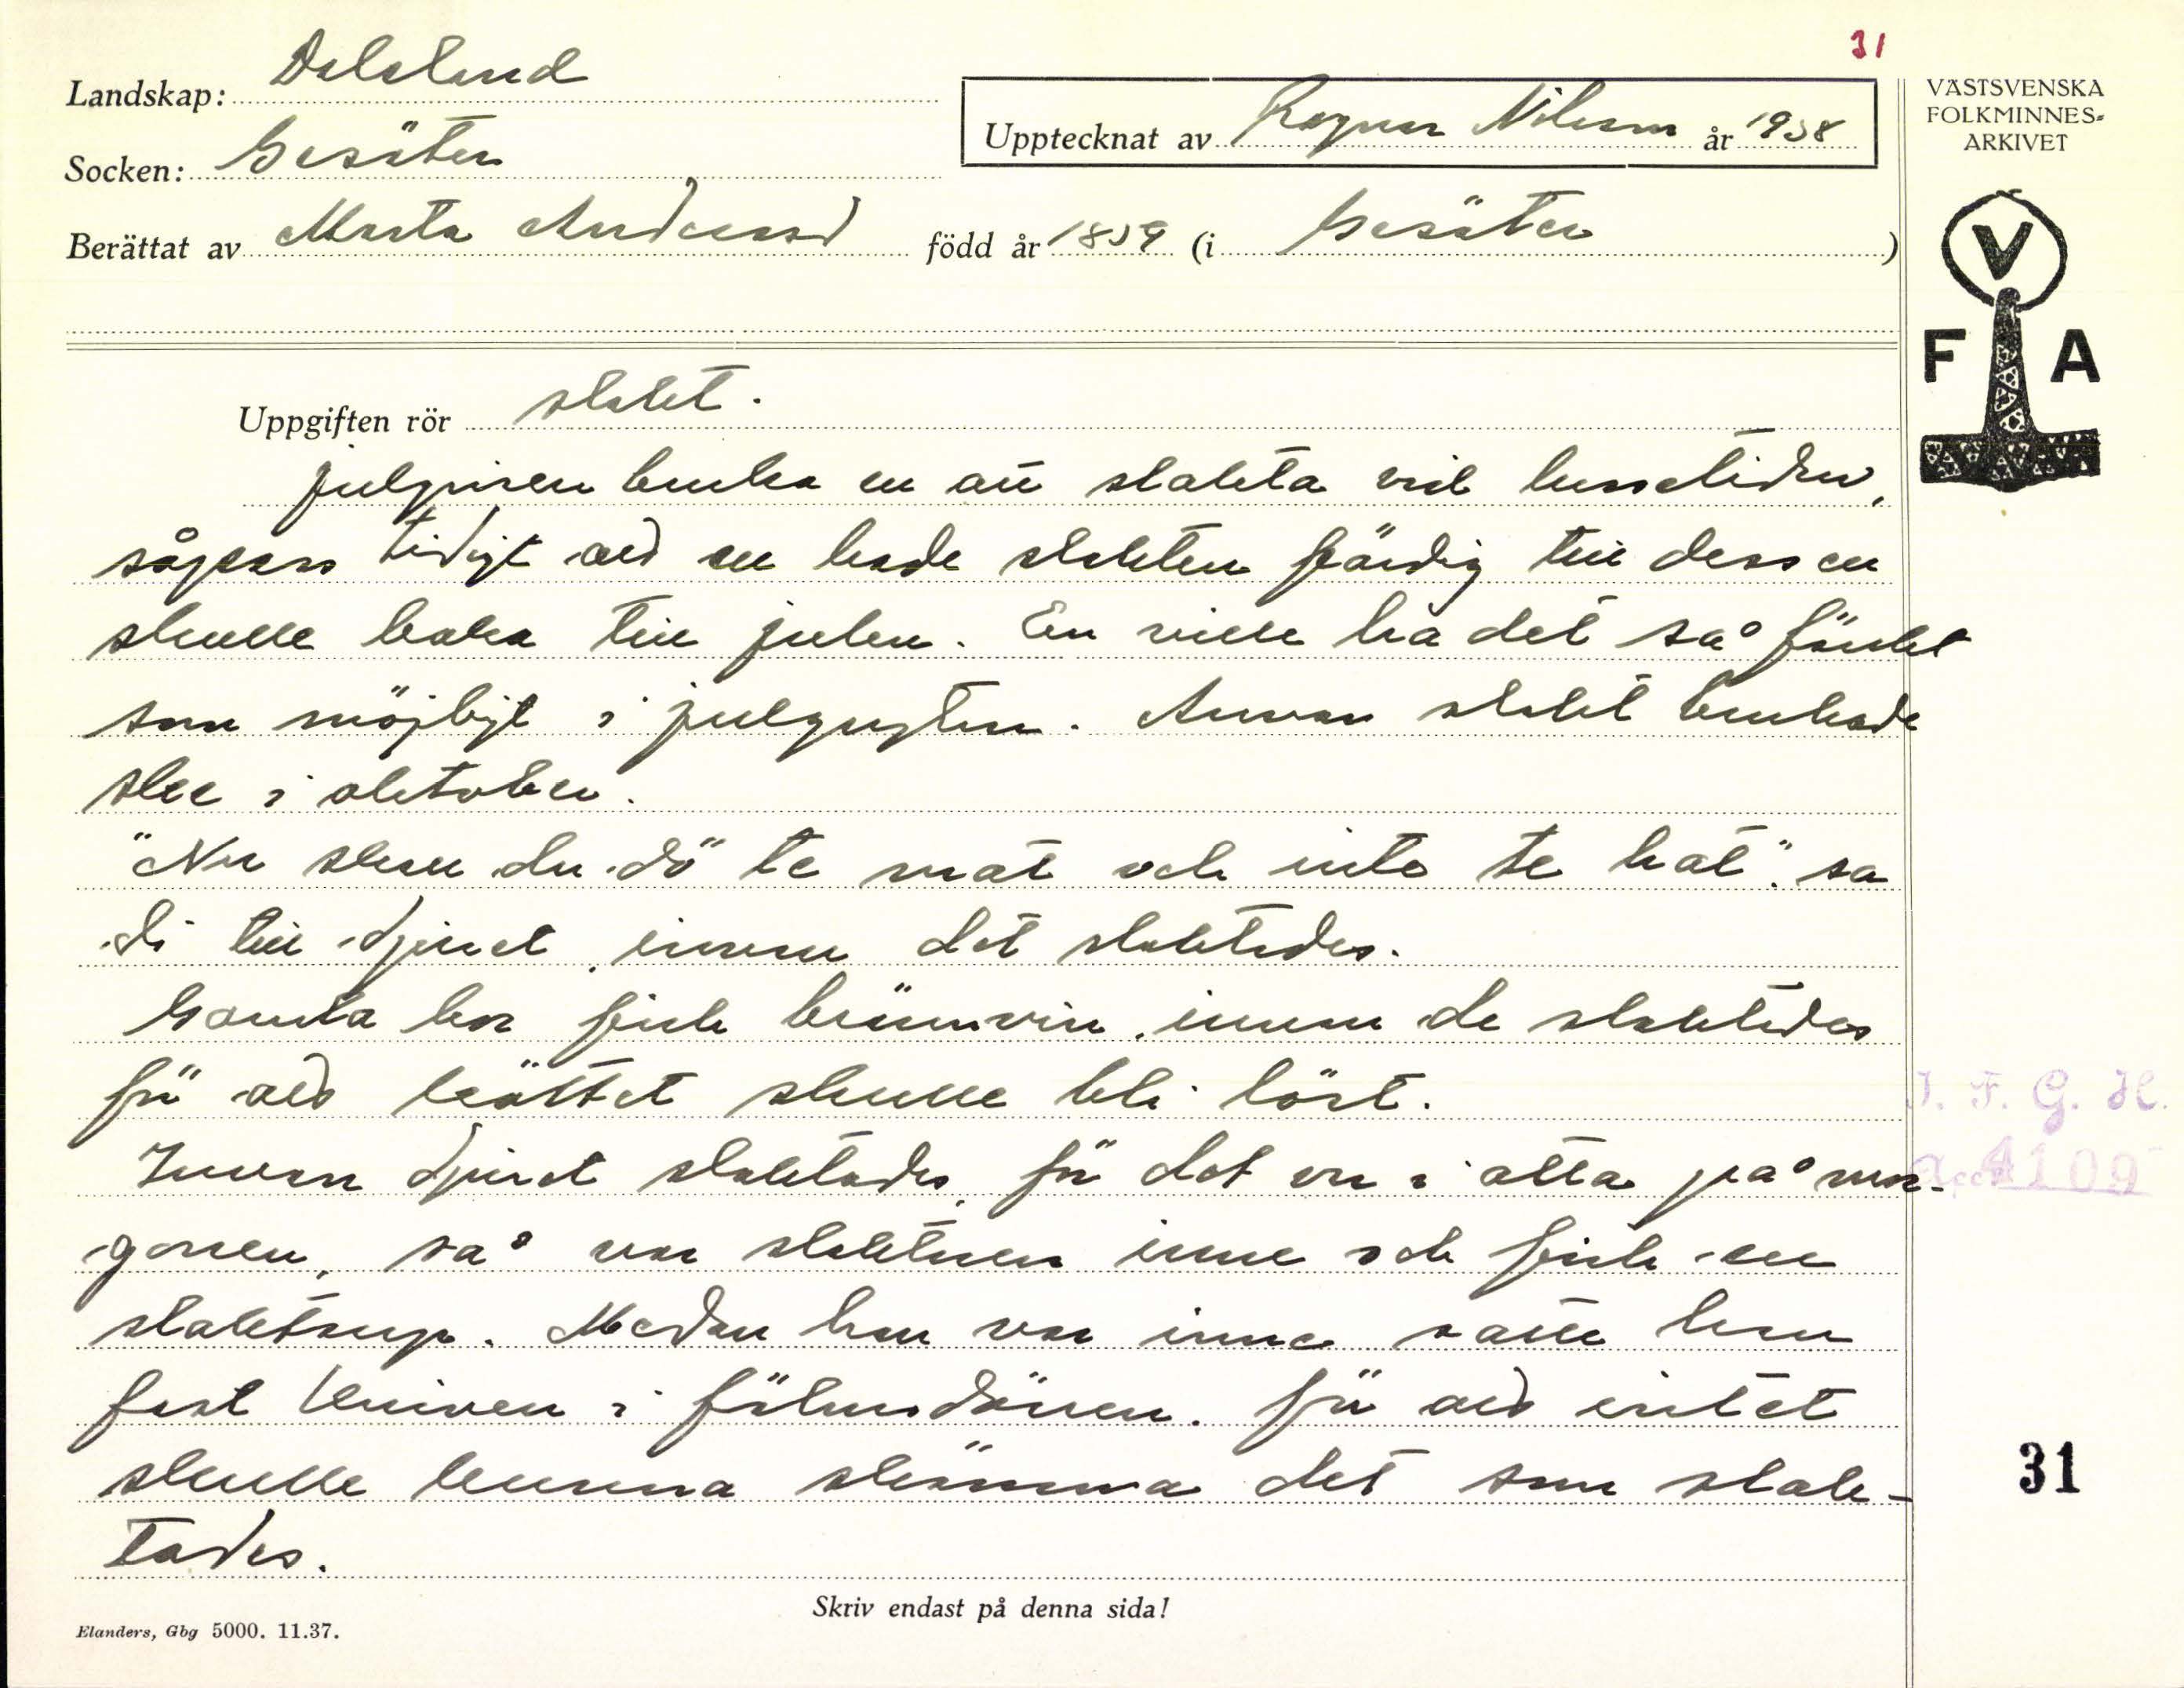 31
Landskap: Dalsland
Upptecknat av Ragnar Nilsson år 1938
VÄSTSVENSKA
FOLKMINNES-
ARKIVET
Socken: Gesäter
Berättat av Marta Andersson född år 1859 (i Gesäter)
V
F A
Uppgiften rör slakt.
julgrisen bruka en att slakta vid lussetiden,
såpass tidigt att en hade slakten färdig till dess en
skulle baka till julen. En ville ha det så färskt
som möjligt i julgrytan. Annan slakt brukade
ske i oktober.
"Nu skall du dö te mat och inte te hat". sa
di till djuret, innan det slaktades.
Gamla kor fick brännvin, innan de slaktades
för att köttet skulle bli löst.
Innan djuret slaktades, för det var i otta på mor-
gonen, så var slaktaren inne och fick en
slaktsup. Medan han var inne satte han
fast kniven i fähusdörren. för att intet
skulle kunna skämma det som slak-
tades.
J. F. G. H.
Acc. 4109
31
Skriv endast på denna sida!
Elanders, Gbg 5000. 11.37.